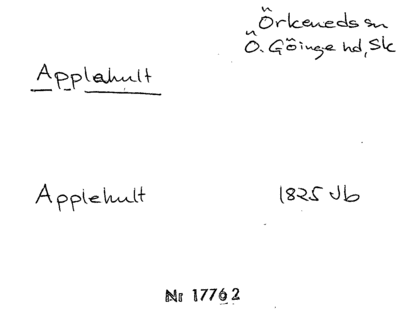 Örkeneds sn
Ö. Göinge hd, Sk
Applahult
Applehult 1825 Jb
Nr 17762